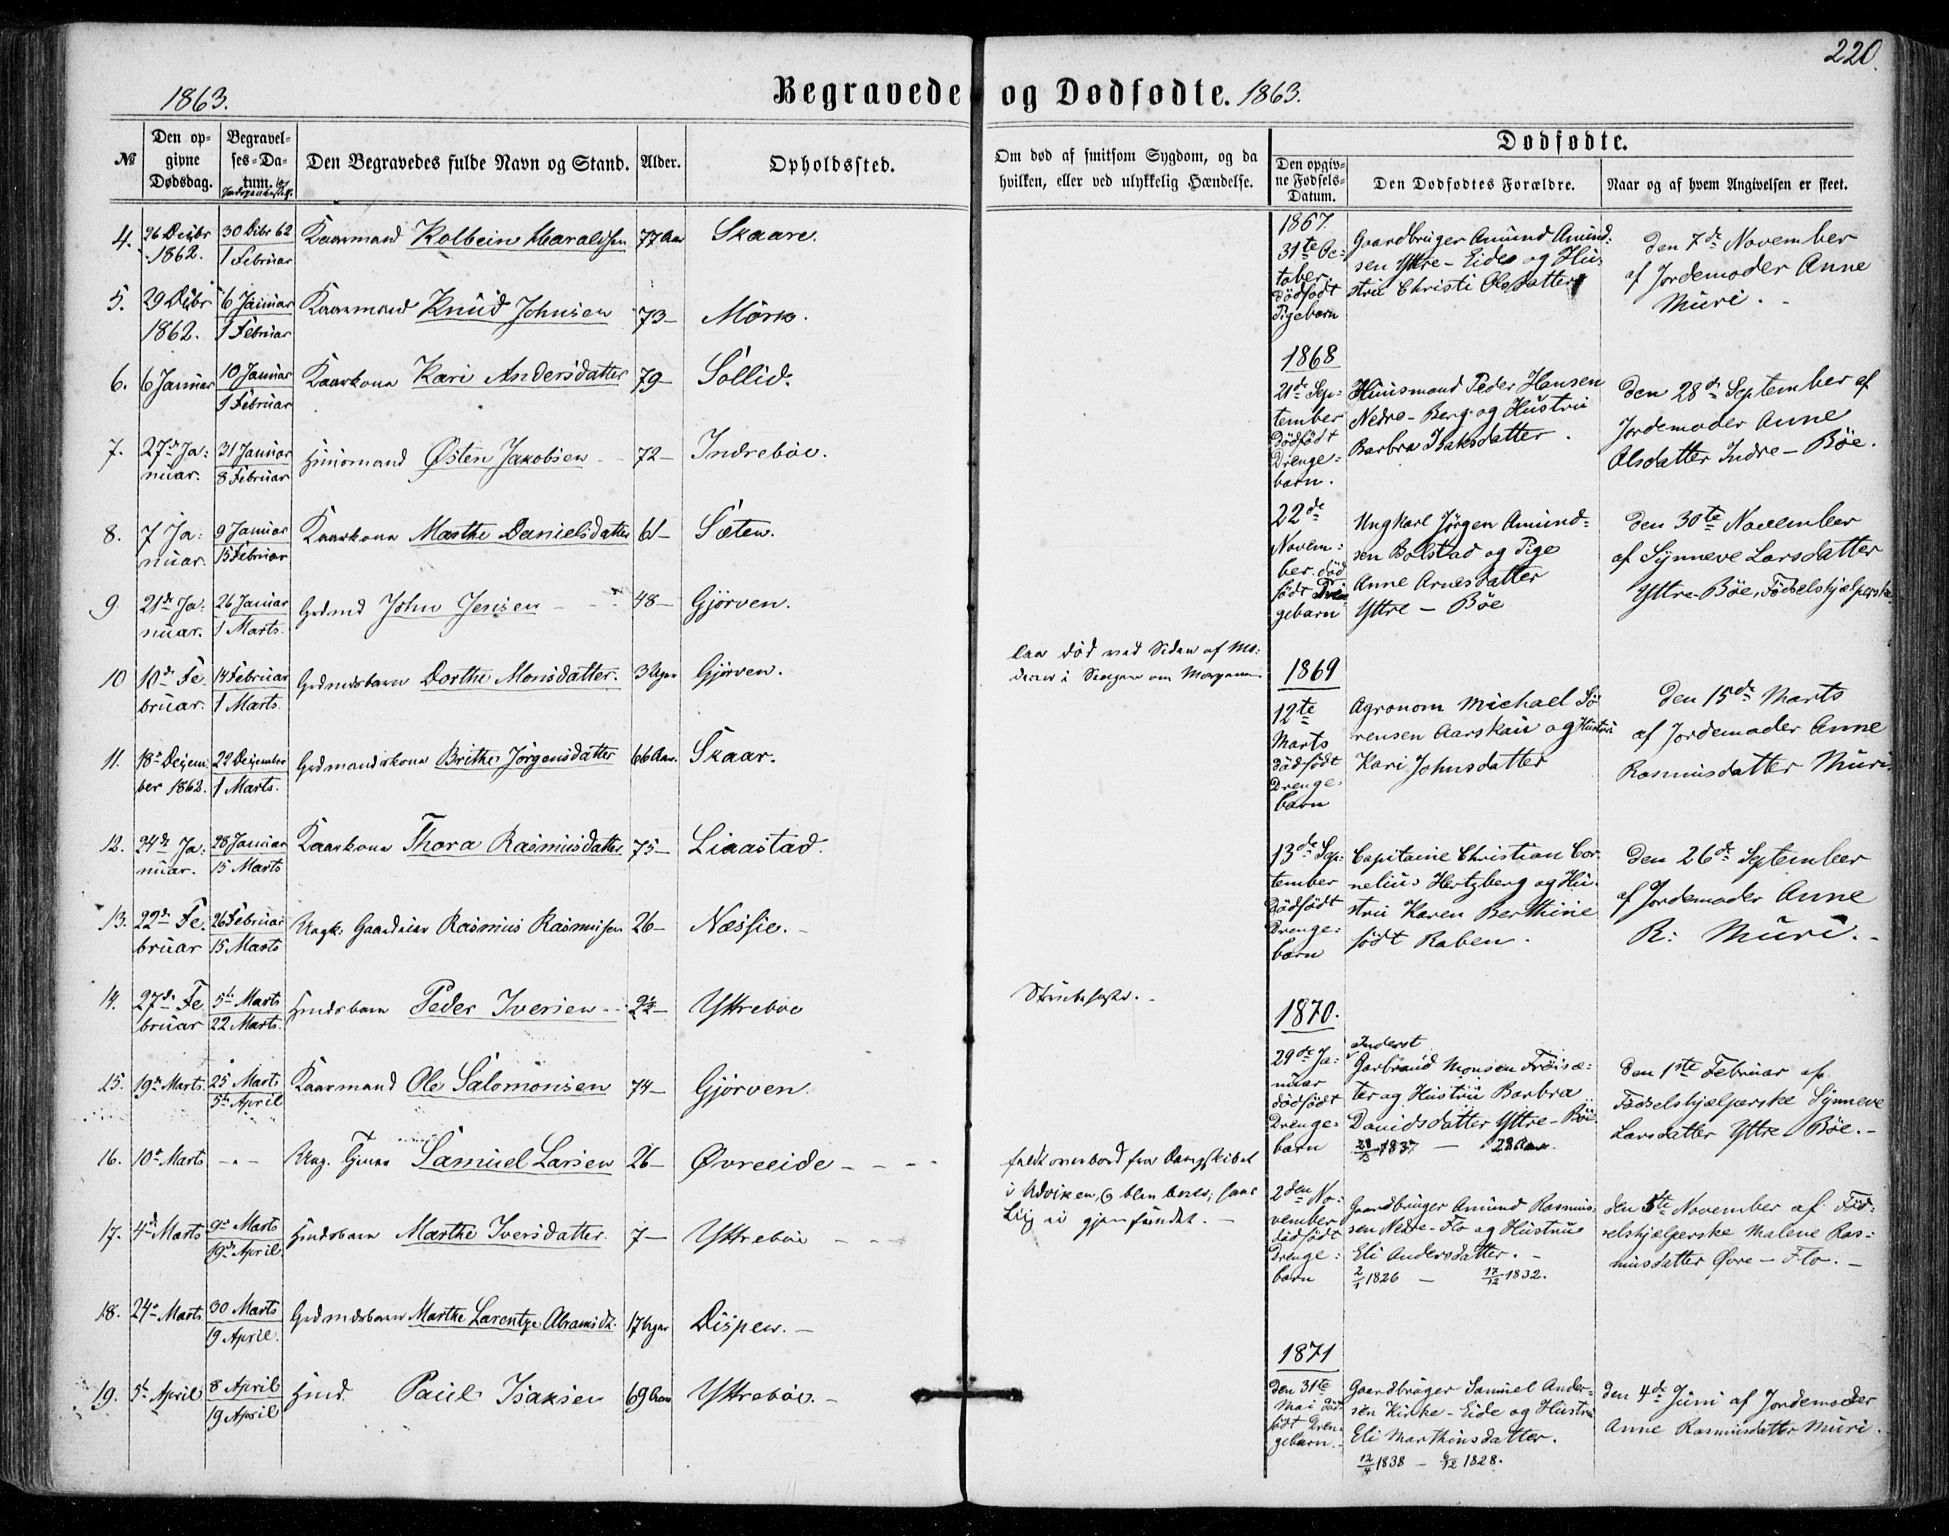 220.
1863.
Begravede og Dødfødte. 1863.
№
Den opgivne Dødsdag.
Begravelses-Datum.
Den Begravedes fulde Navn og Stand.
Alder.
Opholdssted.
Om død af smitsom Sygdom, og da hvilken, eller ved ulykkelig Hændelse.
Dødfødte.
Den opgivne Fødsels-Datum.
Den Dødfødtes Forældre.
Naar og af hvem Angivelsen er skeet.
4. 26 Decbr 1862. 30 Dcbr 62 1 Februar Kaarmand Kolbein Haraldsen 77 Aar Skaare.
5. 29 Dcbr 1862. 6 Januar 1 Februar Kaarmand Knud Johnsen 73 – Mörk.
6. 6 Januar 10 Januar 1 Februar Kaarkona Kari Andersdatter 79 – Sollid.
7. 27de Januar. 31 Januar 8 Februar Huusmand Østen Jakobsen 72 – Indrebøe.
8. 7 Januar. 9 Januar 15 Februar Kaarkona Marthe Danielsdatter 61 – Sæten.
9 21de Januar. 26 Januar 1 Marts. Grdmd John Jensen 48 – Gjørven.
10 10de Februar. 14 Februar 1 Marts. Grdmdsbarn Dorthe Monsdatter. 3 Uger Gjørven.
laa død ved Siden af Moderen i Sengen om Morgenen
11. 18de December 1862. 22 December 1 Marts. Grdmandskona Brithe Jörgensdatter 66 Aar. Skaar.
12. 24de Januar. 28 Januar 15 Marts Kaarkona Thora Rasmusdatter 75 – Liaastad.
13. 22de Februar 26 Februar 15 Marts Ungk. Gaardeier Rasmus Rasmussen 26 – Nessje. –
14. 27de Februar 5te Marts 22 Marts. Hmdsbarn Peder Iversen 2½ – Yttrebøe
Strubehoste. –
15. 19de Marts. 25 Marts 5te April Kaarmand Ole Salomonsen 74 – Gjørven.
16. 10de Marts – „ – Ung. Tjener Samuel Larsen 26 – Øvreeide – – –
faldt overbord fra
i Udviken, og blev
Liig ei gjenfundet. –
17. 4de Marts 9de Marts 19de April. Hmdsbarn Marthe Iversdatter. 7 – Yttrebøe – –
18. 24de Marts 30 Marts 19 April. Grdmdsbarn Marthe Larentze Abramsdt. 17 Uger Dispen. –
19. 5te April 8 April 19 April Hmd. Paul Isaksen 69 Aar Yttrebøe. –
1867.
31te October. dödfödt Pigebarn
Gaardbruger Amund Amundsen Yttre-Eide og Hustru Christi Olsdatter
Den 7de November af Jordemoder Anne Muri. –
1868
21de September dödfödt Drengebarn.
Huusmand Peder Hansen Nedre-Berg og Hustru Barbra Isaksdatter.
Den 28de September af Jordemoder Anne Olsdatter Indre-Bøe.
22de November. död födt Drengebarn
Ungkarl Jörgen Amundsen Bolstad og Pige Anne Arnesdatter Yttre-Bøe
Den 30te November af Synneve Larsdatter Yttre-Bøe, Födselshjelperske
1869
12te Marts dödfödt Drengebarn
Agronom Michael Sörensen Aarskau og Hustru Kari Johnsdatter
Den 15de Marts af Jordemoder Anne Rasmusdatter Muri
13de September dödfödt Drengebarn
Capitaine Christian Cornelius Hertzberg og Hustru Karen Berthine födt Raben.
Den 26de September af Jordemoder Anne R: Muri. –
1870.
29de Januar dödfödt Drengebarn
Inderst Garbrand Monsen Fröisæter og Hustru Barbra Davidsdatter Yttre-Böe 1837 – 28 Aar.
Den 1ste Februar af Födselshjælperske Synneve Larsdatter Yttre Bøe. –
2den November dödfödt Drengebarn
Gaardbruger Amund Rasmussen Nedre-Flo og Hustrue Eli Andersdatter. –
2/1 1826 – 17/12 1832.
den 5te November af Födselshjelperske Malene Rasmusdatter Øvre-Flo. –
1871
Den 31te Mai dödfödt Drengebarn. –
Gaardbruger Samuel Andersen Kirke-Eide og Hustru Eli Marthinsdatter.
12/4 1838 – 6/12 1828.
Den 4de Juni af Jordemoder Anne Rasmusdatter Muri.